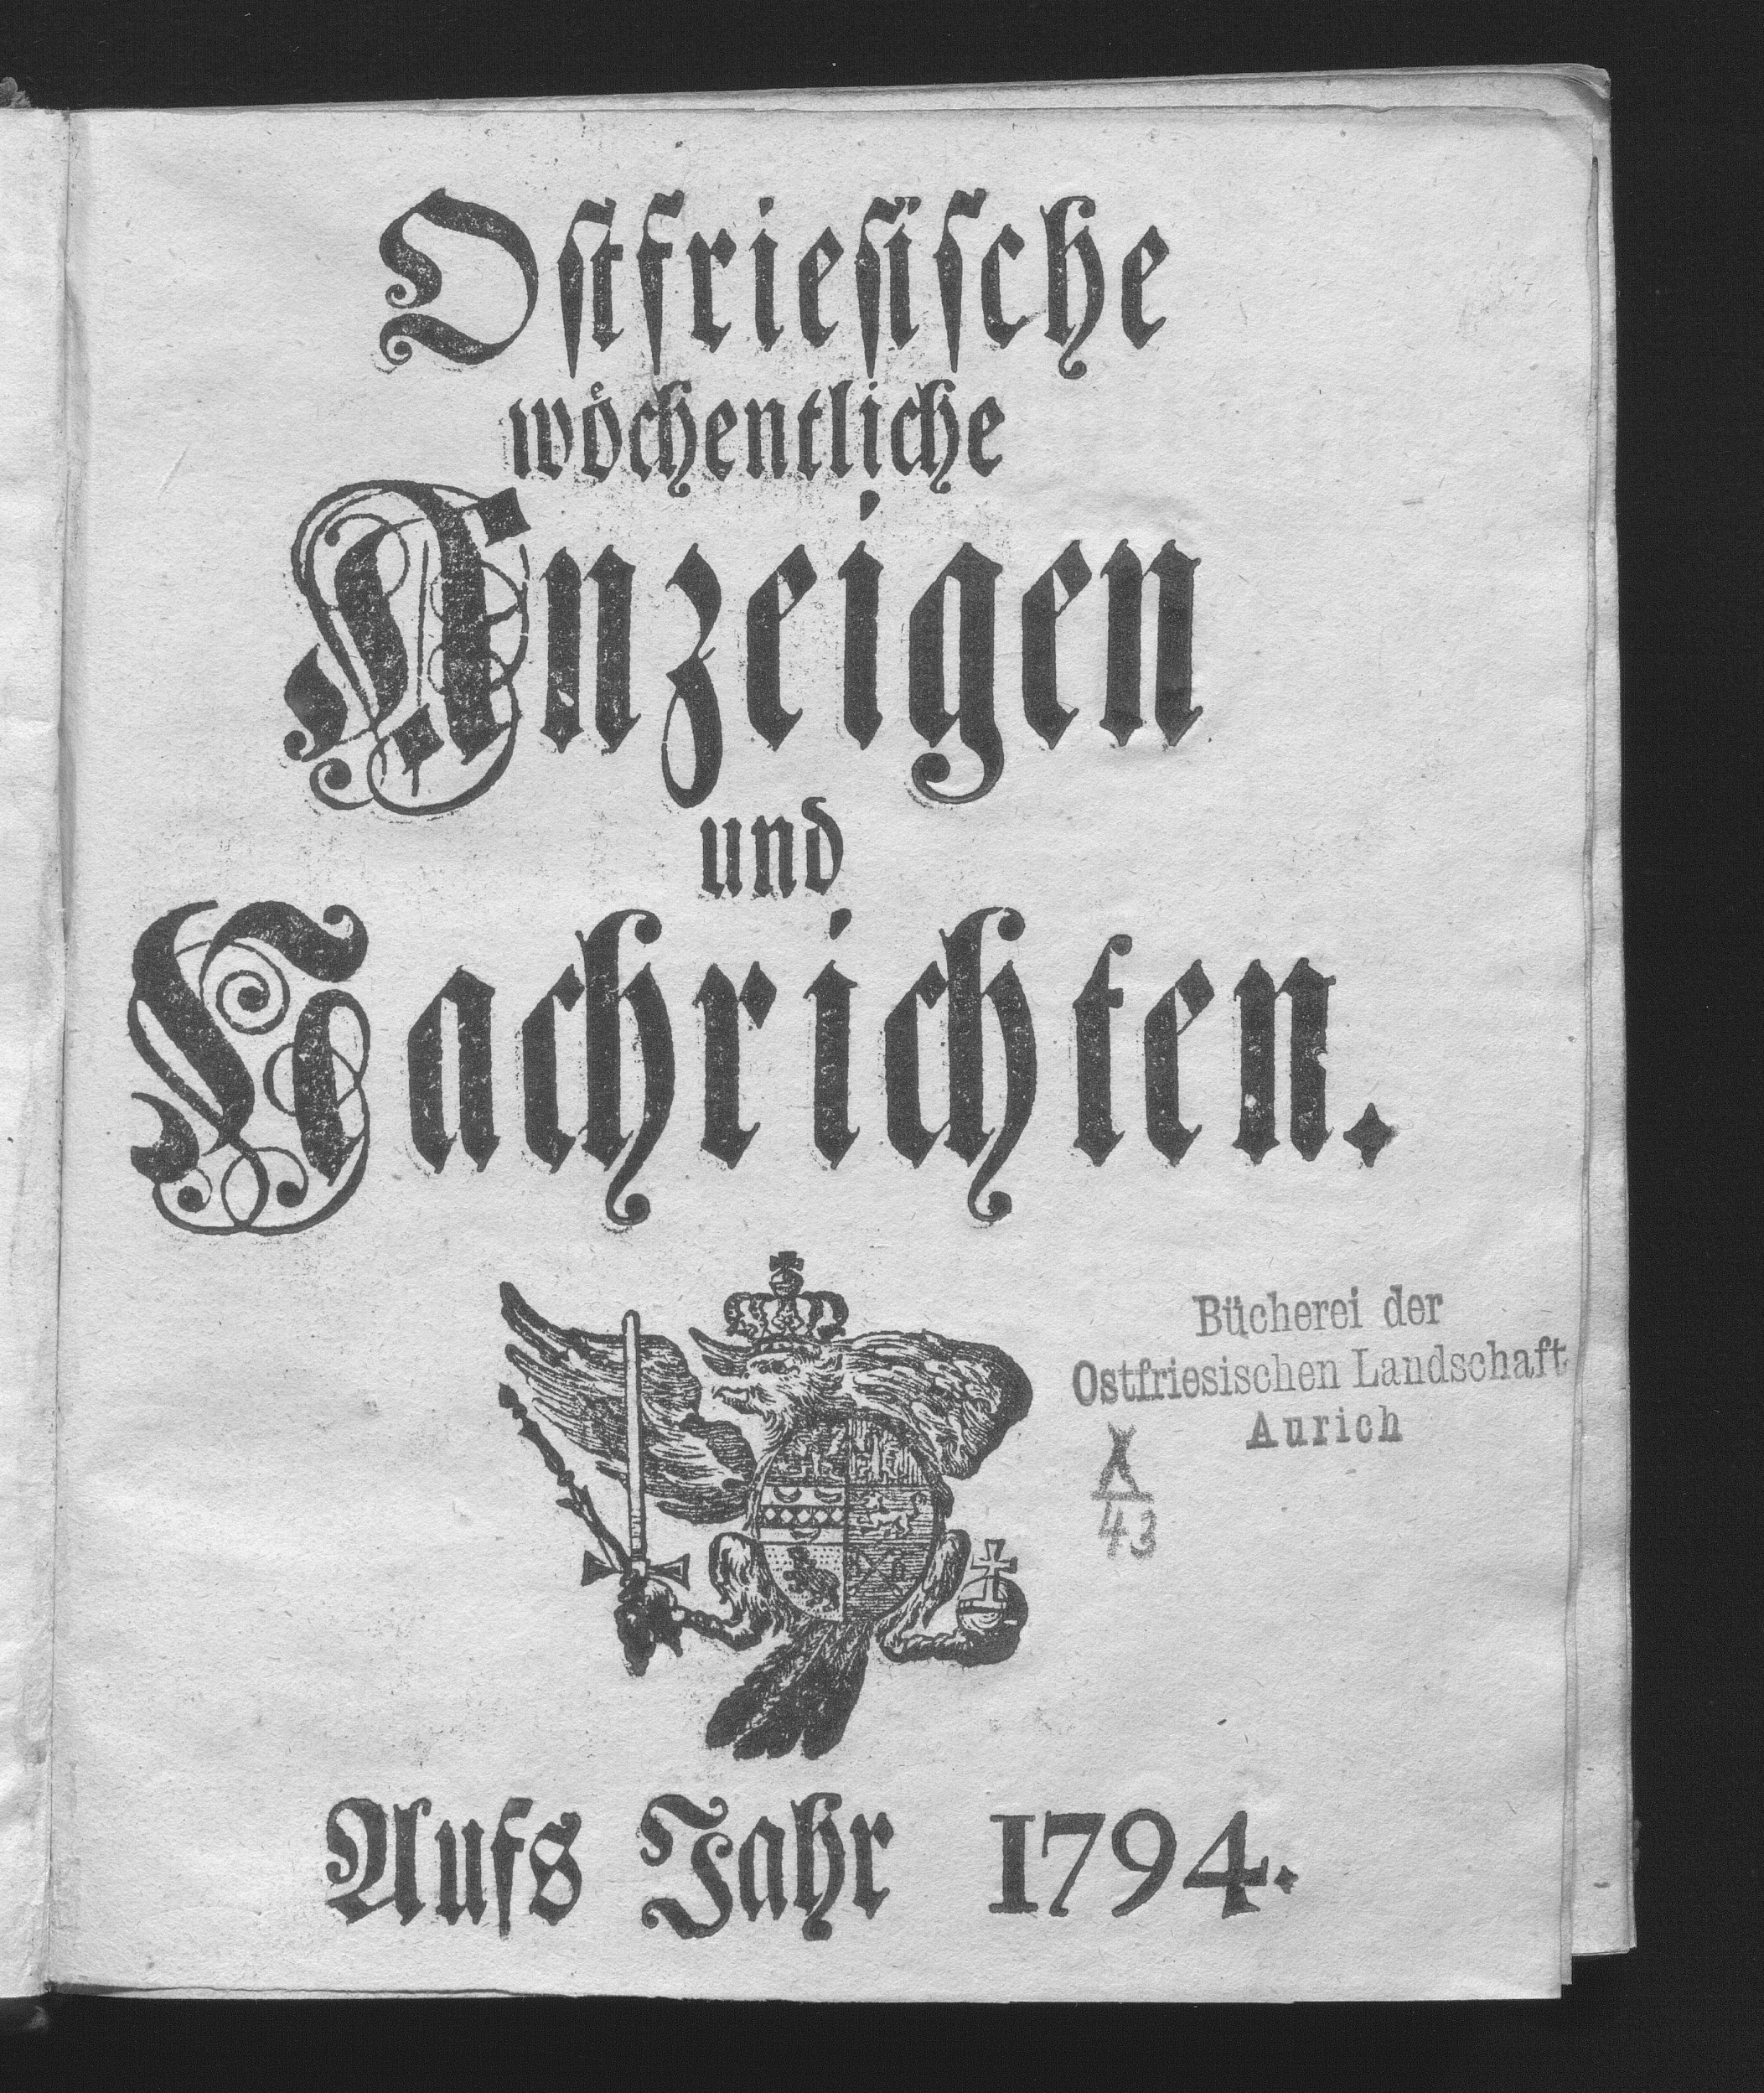 Oſtfrieſiſche
wöchentliche
Anzeigen
und
Nachrichten.
Bücherei der
Ostfriesischen Landschaft
Aurich
X
43
Aufs Jahr 1794.